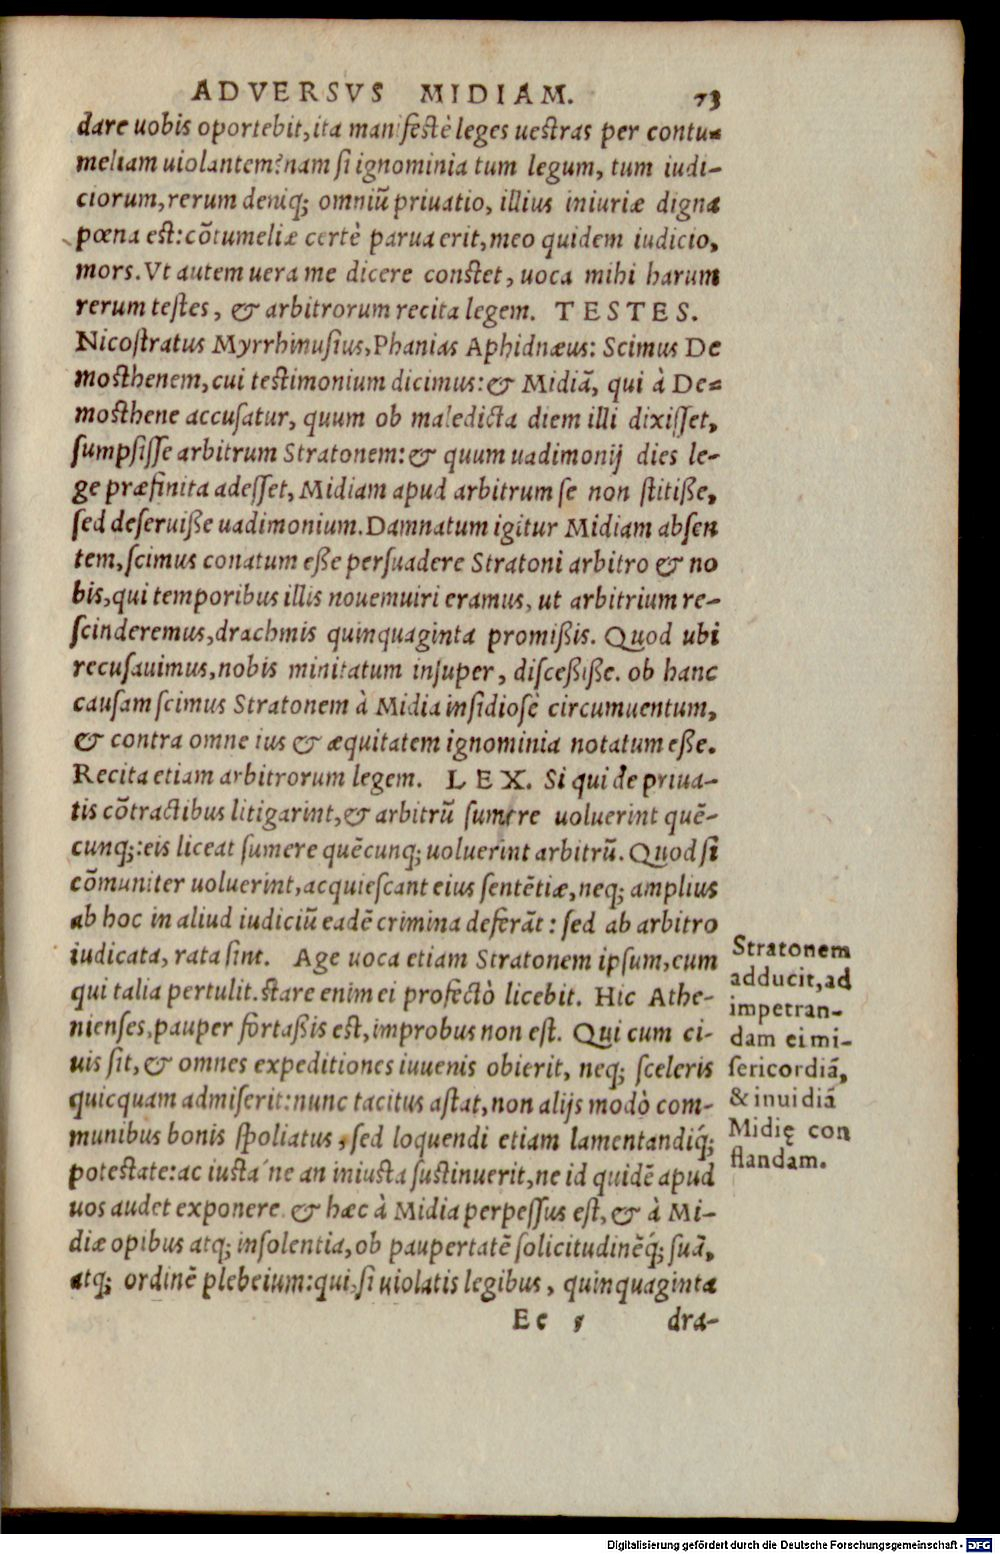 ADVERSVS MIDIAM. 73
dare uobis oportebit, ita manifestè leges uestras per contu-
meliam uiolantem? nam si ignominia tum legum, tum iudi-
ciorum, rerum deniq; omniũ priuatio, illius iniuriæ digna
pœna est: cõtumeliæ certè parua erit, meo quidem iudicio,
mors. Vt autem uera me dicere constet, uoca mihi harum
rerum testes, & arbitrorum recita legem. TESTES.
Nicostratus Myrrhinusius, Phanias Aphidnæus: Scimus De
mosthenem, cui testimonium dicimus: & Midiã, qui à De-
mosthene accusatur, quum ob maledicta diem illi dixisset,
sumpsisse arbitrum Stratonem: & quum uadimonij dies le-
ge præfinita adesset, Midiam apud arbitrum se non stitiße,
sed deseruiße uadimonium. Damnatum igitur Midiam absen
tem, scimus conatum eße persuadere Stratoni arbitro & no
bis, qui temporibus illis nouemuiri eramus, ut arbitrium re-
scinderemus, drachmis quinquaginta promißis. Quod ubi
recusauimus, nobis minitatum insuper, disceßiße. ob hanc
causam scimus Stratonem à Midia insidiosè circumuentum,
& contra omne ius & æquitatem ignominia notatum eße.
Recita etiam arbitrorum legem. LEX. Si qui de priua-
tis cõtractibus litigarint, & arbitrũ sumere uoluerint quẽ-
cunq;: eis liceat sumere quẽcunq; uoluerint arbitrũ. Quod si
cõmuniter uoluerint, acquiescant eius sentẽtiæ, neq; amplius
ab hoc in aliud iudiciũ eadẽ crimina deferãt: sed ab arbitro
iudicata, rata sint. Age uoca etiam Stratonem ipsum, cum
qui talia pertulit. stare enim ei profectò licebit. Hic Athe-
nienses, pauper fortaßis est, improbus non est. Qui cum ci-
uis sit, & omnes expeditiones iuuenis obierit, neq; sceleris
quicquam admiserit: nunc tacitus astat, non alijs modò com-
munibus bonis spoliatus, sed loquendi etiam lamentandiq́;
potestate: ac iusta ne an iniusta sustinuerit, ne id quidẽ apud
uos audet exponere. & hæc à Midia perpessus est, & à Mi-
diæ opibus atq; insolentia, ob paupertatẽ solicitudinẽq́; suã,
atq; ordinẽ plebeium: qui, si uiolatis legibus, quinquaginta
Ee 5 dra-
Stratonem
adducit, ad
impetran-
dam ei mi-
sericordiã,
& inuidiã
Midię con
flandam.
Digitalisierung gefördert durch die Deutsche Forschungsgemeinschaft - DFG